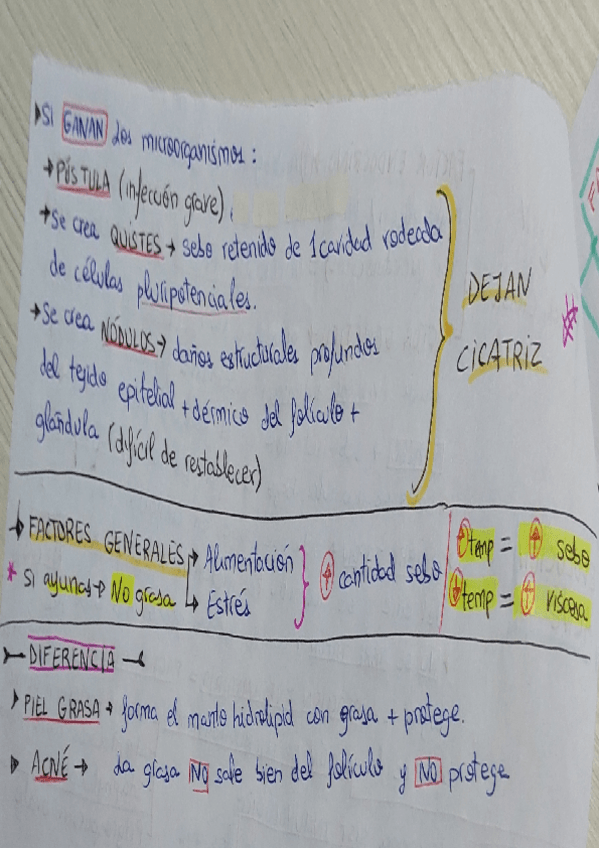 ➤ SI GANAN los microorganismos:
→ PÚSTULA (infección grave).
→ Se crea QUISTES → sebo retenido de 1 cavidad rodeada
de células pluripotenciales.
→ Se crea NÓDULOS → daños estructurales profundos
del tejido epitelial + dérmico del folículo +
glándula (difícil de restablecer)
DEJAN
CICATRIZ
*
→ FACTORES GENERALES → Alimentación
* Si ayunas → No grasa → Estrés
↑ cantidad sebo
↑ temp = ↑ sebo
↓ temp = ↑ viscosa
DIFERENCIA
➤ PIEL GRASA → forma el manto hidrolipid con grasa + protege.
➤ ACNÉ → La grasa NO sale bien del folículo y NO protege